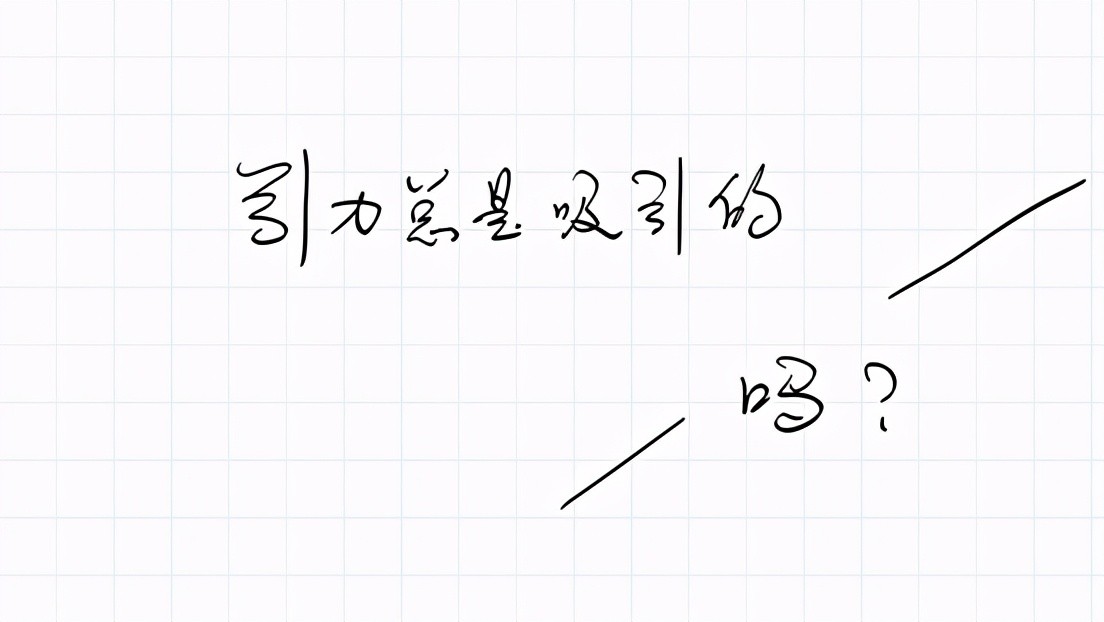 引力总是吸引的
吗?